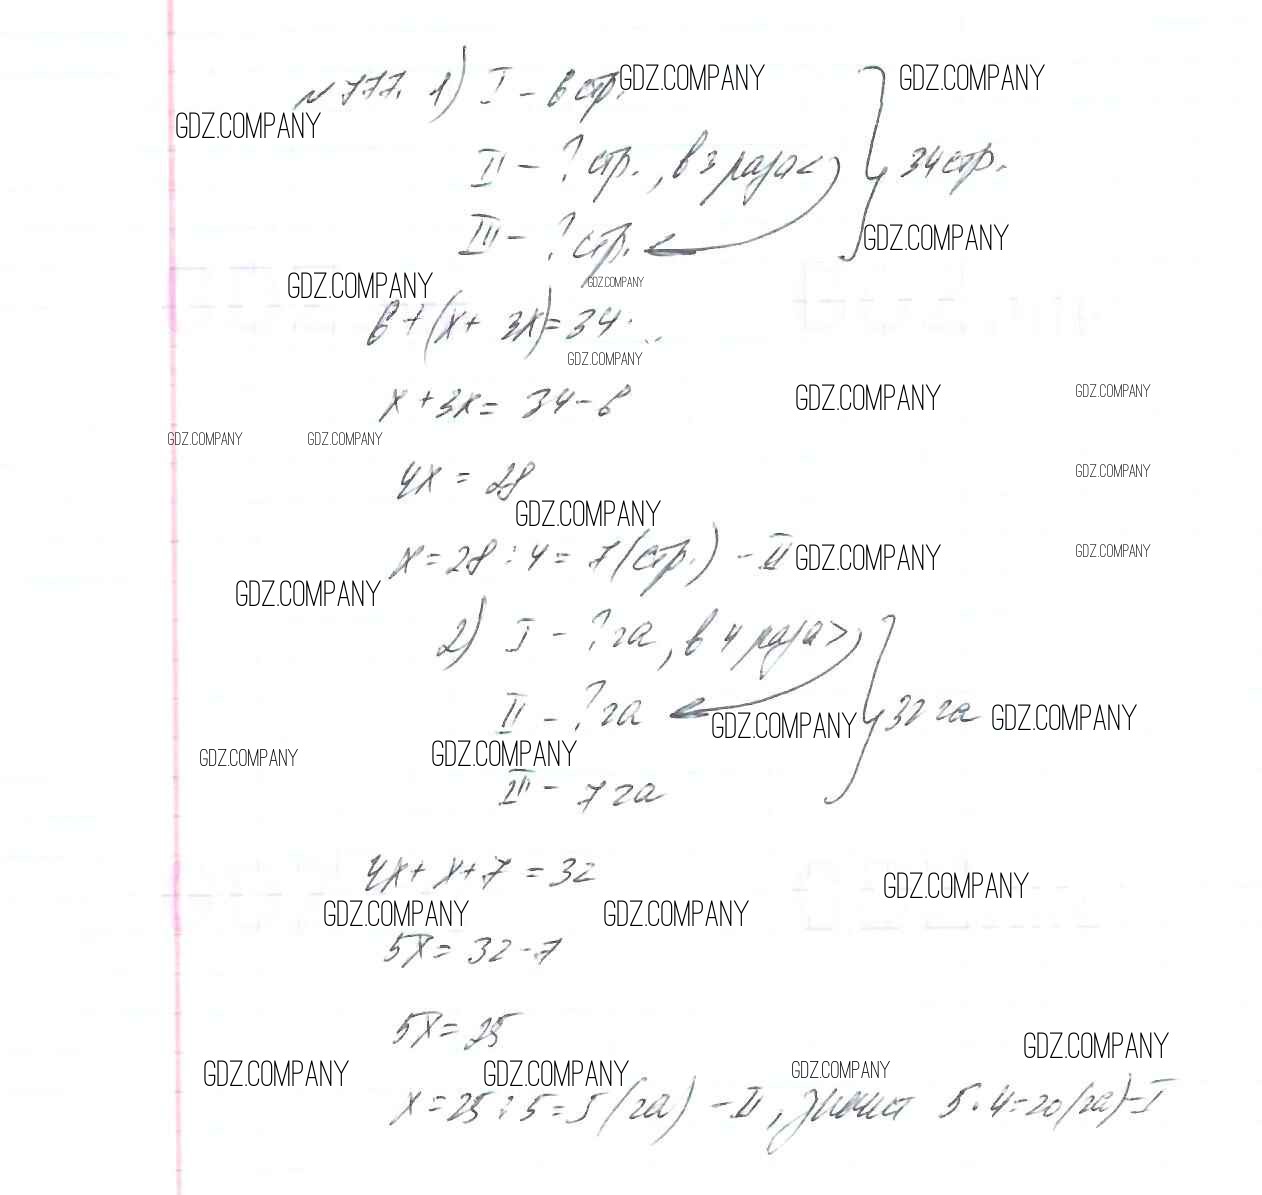 №777. 1) I – 6 стр. GDZ.COMPANY GDZ.COMPANY
GDZ.COMPANY
II – ? стр., в 3 раза < 34 стр.
III – ? стр. GDZ.COMPANY
GDZ.COMPANY GDZ.COMPANY
6 + (x + 3x) = 34
GDZ.COMPANY
x + 3x = 34 – 6 GDZ.COMPANY GDZ.COMPANY
GDZ.COMPANY GDZ.COMPANY
4x = 28 GDZ.COMPANY
GDZ.COMPANY
x = 28 : 4 = 7 (стр.) – II GDZ.COMPANY GDZ.COMPANY
GDZ.COMPANY
2) I – ? га, в 4 раза >
II – ? га GDZ.COMPANY 32 га GDZ.COMPANY
GDZ.COMPANY GDZ.COMPANY
III – 7 га
4x + x + 7 = 32 GDZ.COMPANY
GDZ.COMPANY GDZ.COMPANY
5x = 32 – 7
5x = 25 GDZ.COMPANY
GDZ.COMPANY GDZ.COMPANY GDZ.COMPANY
x = 25 : 5 = 5 (га) – II, значит 5 · 4 = 20 (га) – I